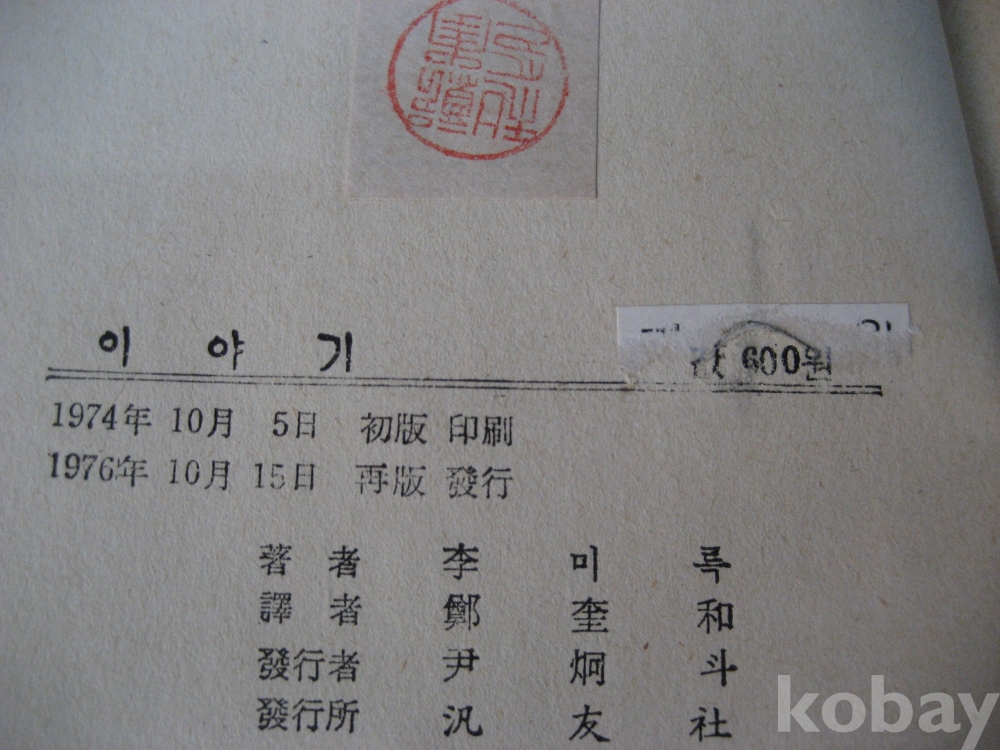 이 야 기
값 600원
1974年 10月 5日 初版 印刷
1976年 10月 15日 再版 發行
著 者 李 미 륵
譯 者 鄭 奎 和
發行者 尹 炯 斗
發行所 汎 友 社
kobay